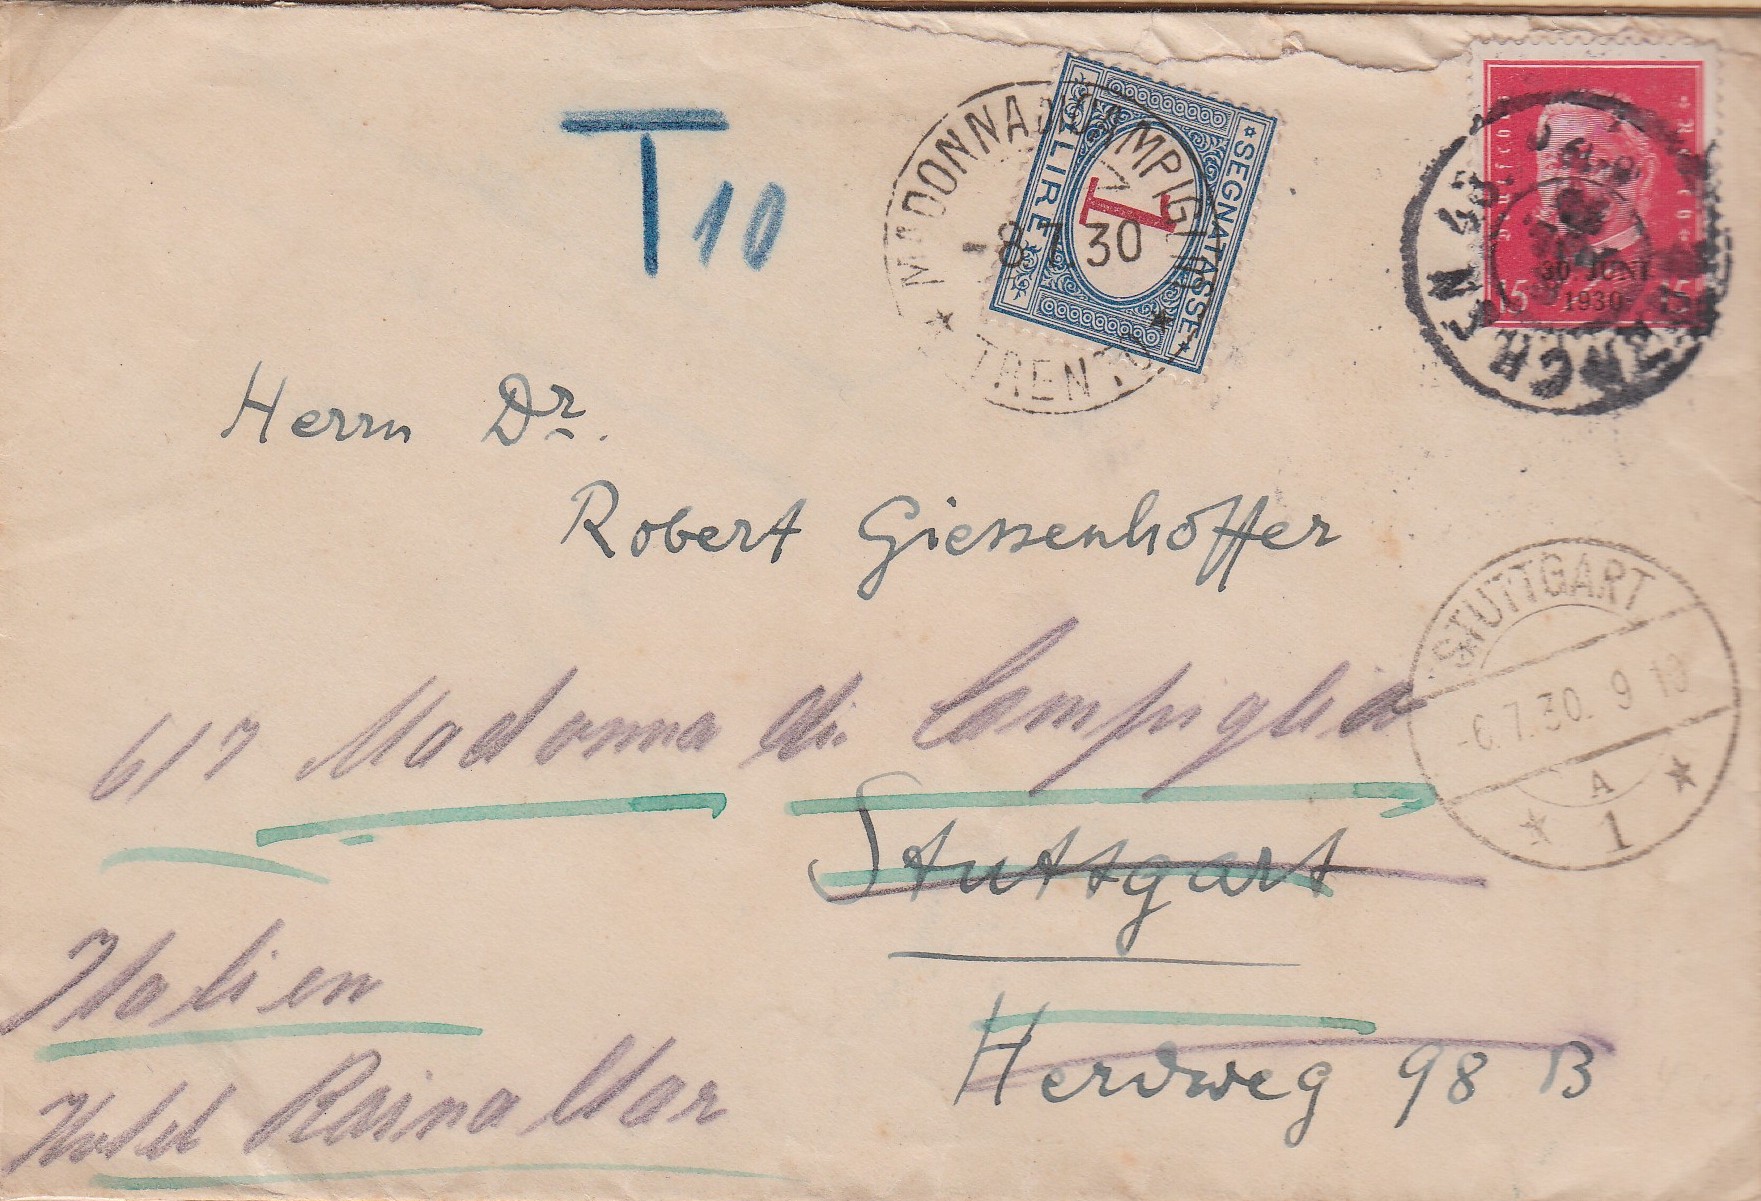 T 10
MADONNA DI CAMPIGLIO
-8.7.30
* TRENTO *
*SEGNATASSE*
1
*LIRE*
MÜNCHEN
30. JUNI
1930
15 15
Herrn Dr.
Robert Giessenhoffer
STUTTGART
-6.7.30. 9-10
A
* 1 *
6/7 Madonna di Campiglio
Stuttgart
Italien
Herdweg 98 B
Hotel